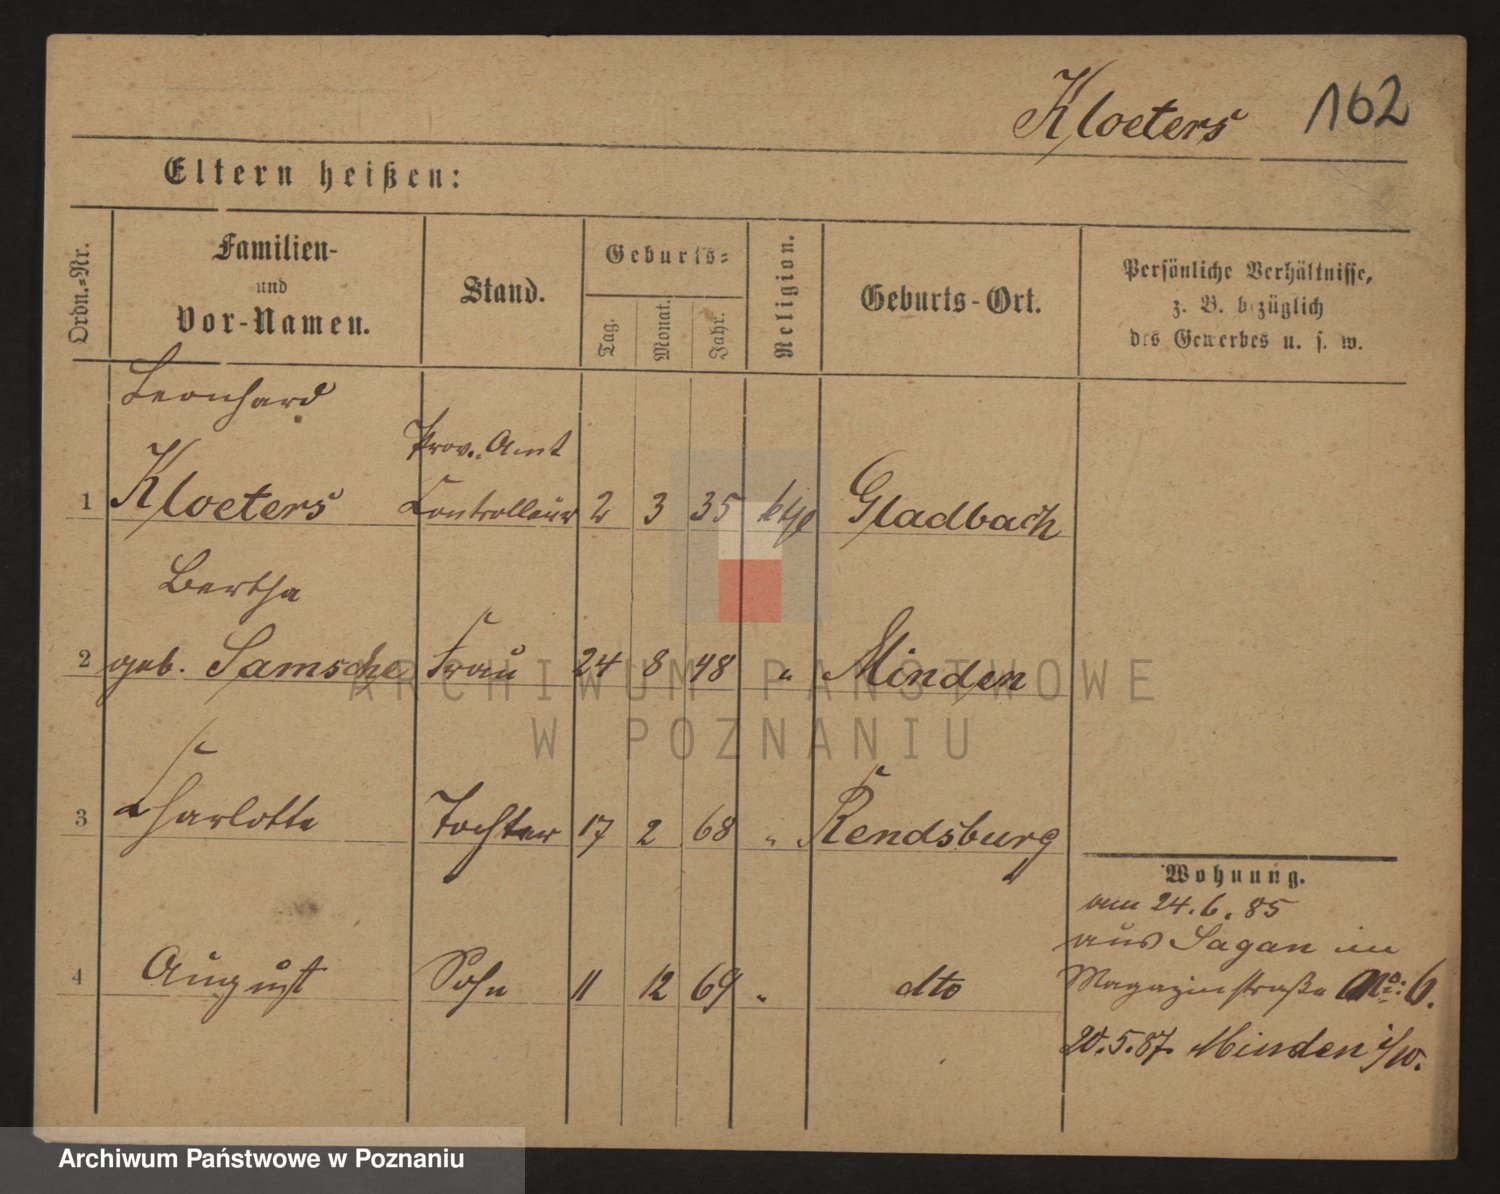 Kloeters 162
Eltern heißen:
Ordn.-Nr.
Familien-
und
Vor-Namen.
Stand.
Geburts-
Tag.
Monat.
Jahr.
Religion.
Geburts-Ort.
Persönliche Verhältnisse,
z. B. bezüglich
des Gewerbes u. s. w.
Leonhard
Prov. Amt
1 Kloeters Controlleur 2 3 35 ktl Gladbach
Bertha
2 geb. Samsche Frau 24 8 48 " Minden
3 Charlotte Tochter 17 2 68 " Rendsburg
Wohnung.
am 24.6.85
aus Sagan in
4 August Sohn 11 12 69 " dto
Magazinstraße No: 6.
20.5.87. Minden i/W.
ARCHIWUM PAŃSTWOWE
W POZNANIU
Archiwum Państwowe w Poznaniu